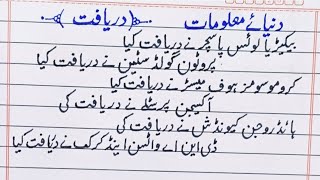 دنیائے معلومات (دریافت)
بیکٹیریا لوئس پاسچر نے دریافت کیا
پروٹون گولڈ سٹین نے دریافت کیا
کروموسومز ہوف میسٹر نے دریافت کیا
آکسیجن پرسٹلے نے دریافت کی
ہائڈروجن کیونڈش نے دریافت کی
ڈی این اے واٹسن اینڈ کرک نے دریافت کیا